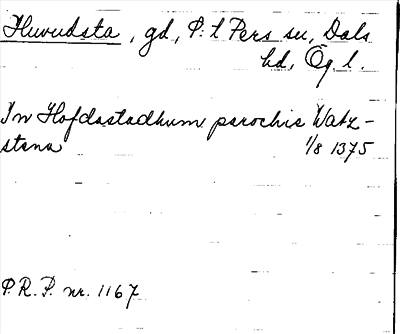 Huvudsta, gd, P:t Pers sn, Dals
hd, Ög l.
In Hofdastadhum parochie Watz-
stena 1/8 1375
P.R.P. nr. 1167